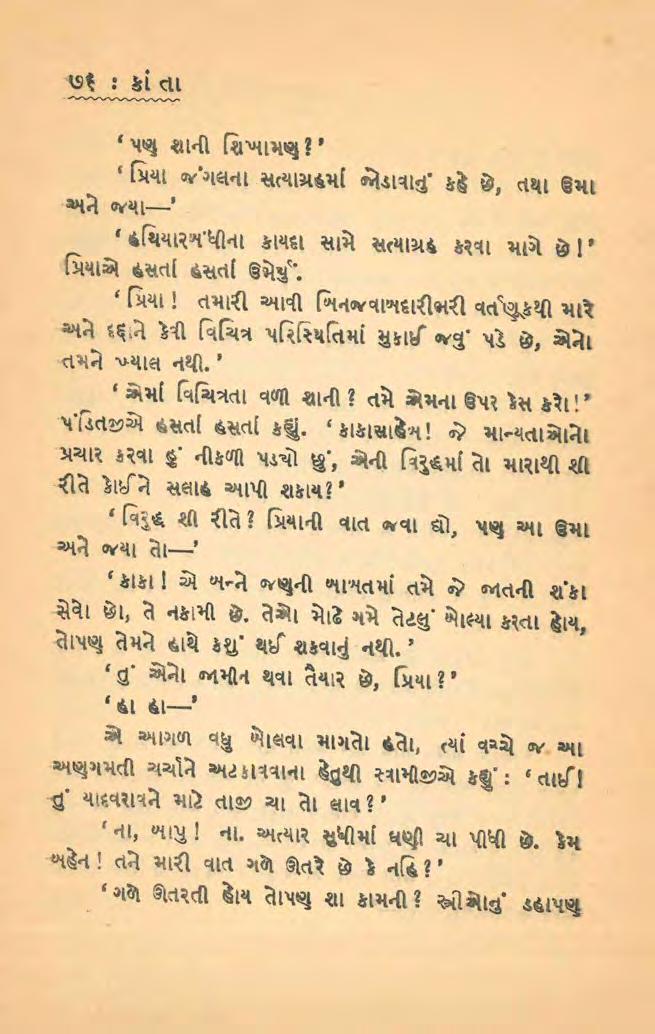 ૭૬ : કાંતા
‘પણ શાની શિખામણ?’
‘પ્રિયા જંગલના સત્યાગ્રહમાં જોડાવાનું કહે છે, તથા ઉમા
અને જયા—’
‘હથિયારબંધીના કાયદા સામે સત્યાગ્રહ કરવા માગે છે!’
પ્રિયાએ હસતાં હસતાં ઉમેર્યું.
‘પ્રિયા! તમારી આવી બિનજવાબદારીભરી વર્તણૂકથી મારે
અને દદ્દાને કેવી વિચિત્ર પરિસ્થિતિમાં મુકાઈ જવું પડે છે, એનો
તમને ખ્યાલ નથી.’
‘એમાં વિચિત્રતા વળી શાની? તમે એમના ઉપર કેસ કરો!’
પંડિતજીએ હસતાં હસતાં કહ્યું. ‘કાકાસાહેબ! જે માન્યતાઓનો
પ્રચાર કરવા હું નીકળી પડ્યો છું, એની વિરુદ્ધમાં તો મારાથી શી
રીતે કોઈને સલાહ આપી શકાય?’
‘વિરુદ્ધ શી રીતે? પ્રિયાની વાત જવા દ્યો, પણ આ ઉમા
અને જયા તો—’
‘કાકા! એ બન્ને જણની બાબતમાં તમે જે જાતની શંકા
સેવો છો, તે નકામી છે. તેઓ મોઢે ગમે તેટલું બોલ્યા કરતા હોય,
તોપણ તેમને હાથે કશું થઈ શકવાનું નથી.’
‘તું એનો જામીન થવા તૈયાર છે, પ્રિયા?’
‘હા હા—’
એ આગળ વધુ બોલવા માગતો હતો, ત્યાં વચ્ચે જ આ
અણગમતી ચર્ચાને અટકાવવાના હેતુથી સ્વામીજીએ કહ્યું : ‘તાઈ!
તું યાદવરાવને માટે તાજી ચા તો લાવ?’
‘ના, બાપુ! ના. અત્યાર સુધીમાં ઘણી ચા પીધી છે. કેમ
બહેન! તને મારી વાત ગળે ઊતરે છે કે નહિ?’
‘ગળે ઊતરતી હોય તોપણ શા કામની? સ્ત્રીઓનું ડહાપણ